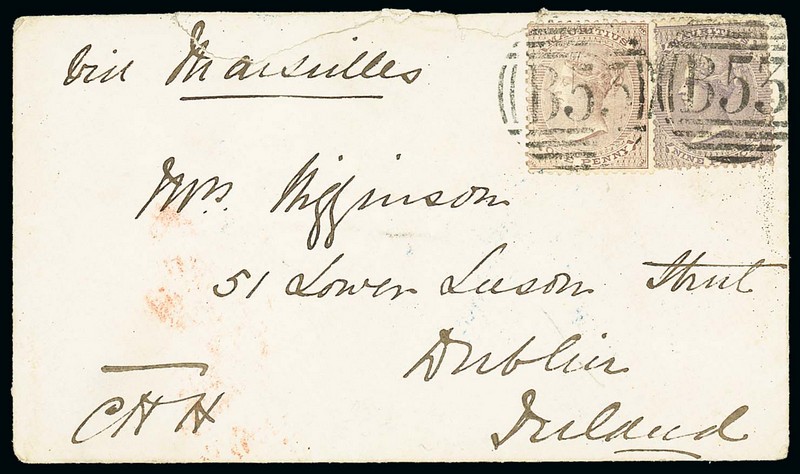 via Marseilles
MAURITIUS MAURITIUS
B53 B53
ONE PENNY NINE
Mrs. Higginson
51 Lower Leeson Street
Dublin
Ireland
CHH